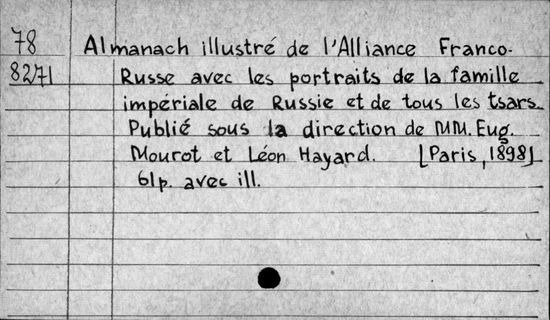 78
8271
Almanach illustré de l'Alliance Franco-
Russe avec les portraits de la famille
impériale de Russie et de tous les tsars.
Publié sous la direction de MM. Eug.
Mourot et Léon Hayard. [Paris, 1898]
61p. avec ill.